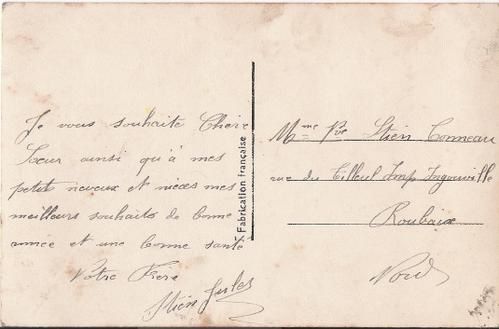 Je vous souhaite Chère
Sœur ainsi qu'à mes
petit neveux et nièces mes
meilleurs souhaits de bonne
année et une bonne santé
Votre Frère
Stien Jules
Fabrication française
Mme Vve Stien Tonneau
rue du Tilleul Imp Ingouville
Roubaix
Nord